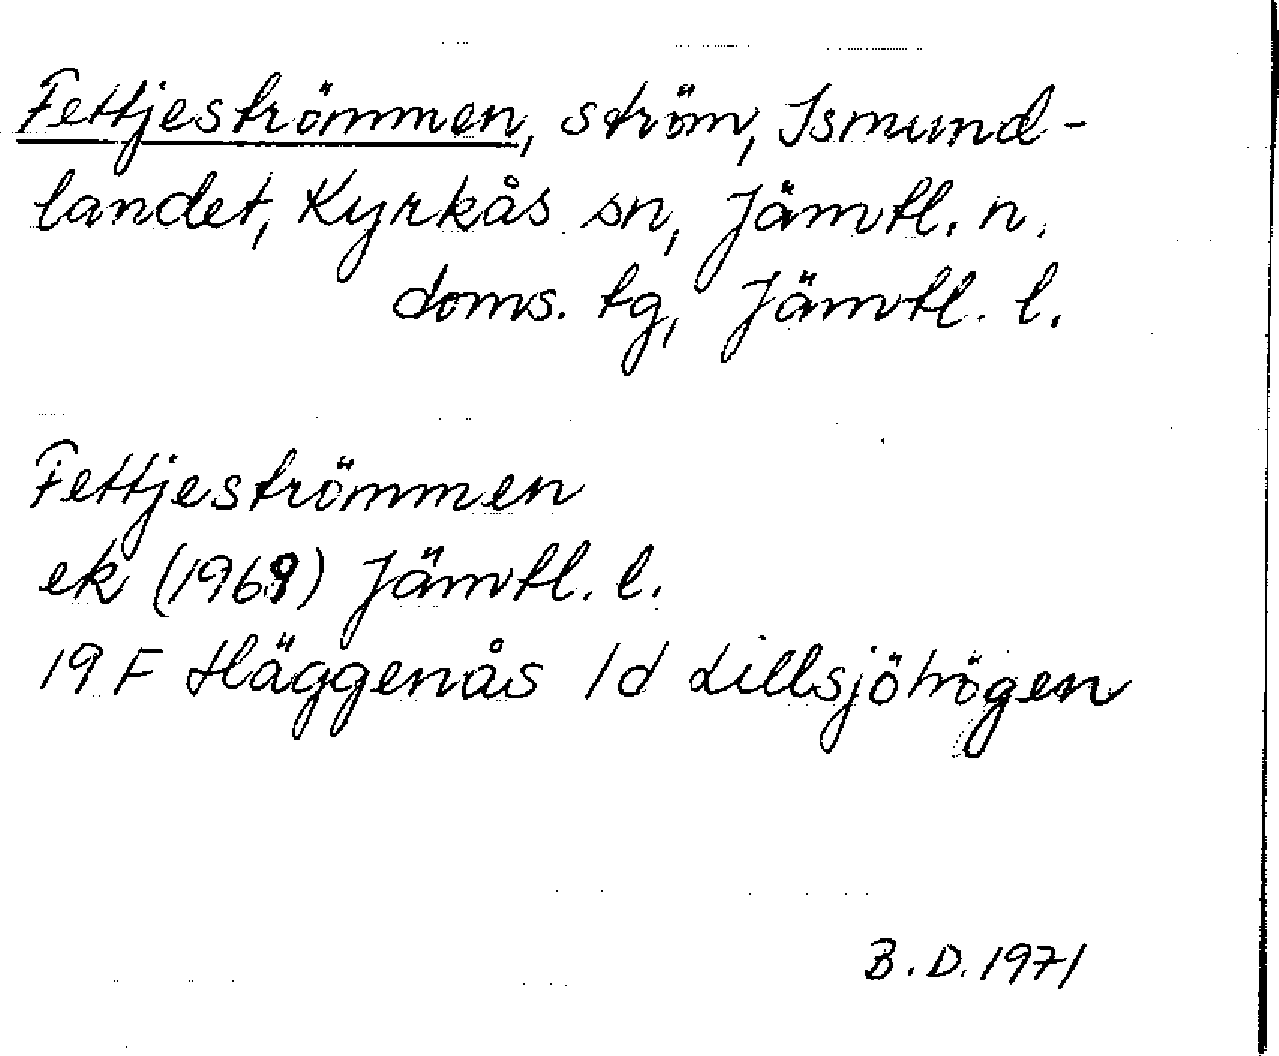 Fettjeströmmen, ström, Ismund-
landet, Kyrkås sn, Jämtl. n.
doms. tg, Jämtl. l.
Fettjeströmmen
ek (1969) Jämtl. l.
19 F Häggenås 1d Lillsjöhögen
B. D. 1971